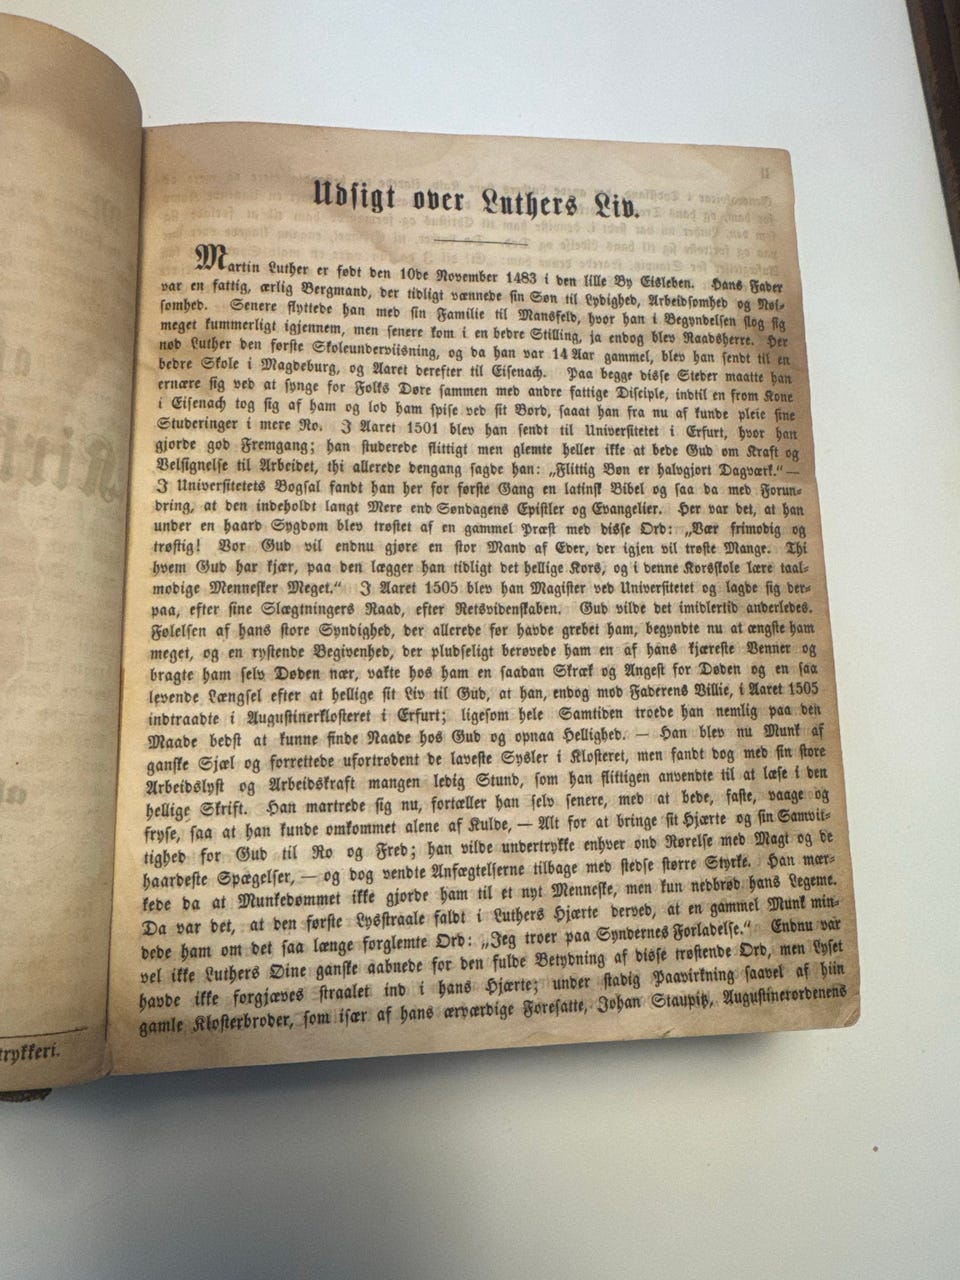 Udsigt over Luthers Liv.
Martin Luther er født den 10de November 1483 i den lille By Eisleben. Hans Fader
var en fattig, ærlig Bergmand, der tidligt vænnede sin Søn til Lydighed, Arbeidsomhed og Nøi-
somhed. Senere flyttede han med sin Familie til Mansfeld, hvor han i Begyndelsen slog sig
meget kummerligt igjennem, men senere kom i en bedre Stilling, ja endog blev Raadsherre. Her
nød Luther den første Skoleunderviisning, og da han var 14 Aar gammel, blev han sendt til en
bedre Skole i Magdeburg, og Aaret derefter til Eisenach. Paa begge disse Steder maatte han
ernære sig ved at synge for Folks Døre sammen med andre fattige Disciple, indtil en from Kone
i Eisenach tog sig af ham og lod ham spise ved sit Bord, saaat han fra nu af kunde pleie sine
Studeringer i mere Ro. I Aaret 1501 blev han sendt til Universitetet i Erfurt, hvor han
gjorde god Fremgang; han studerede flittigt men glemte heller ikke at bede Gud om Kraft og
Velsignelse til Arbeidet, thi allerede dengang sagde han: „Flittig Bøn er halvgjort Dagværk.“ —
I Universitetets Bogsal fandt han her for første Gang en latinsk Bibel og saa da med Forun-
dring, at den indeholdt langt Mere end Søndagens Epistler og Evangelier. Her var det, at han
under en haard Sygdom blev trøstet af en gammel Præst med disse Ord: „Vær frimodig og
trøstig! Vor Gud vil endnu gjøre en stor Mand af Eder, der igjen vil trøste Mange. Thi
hvem Gud har kjær, paa den lægger han tidligt det hellige Kors, og i denne Korsskole lære taal-
modige Mennesker Meget.“ I Aaret 1505 blev han Magister ved Universitetet og lagde sig der-
paa, efter sine Slægtningers Raad, efter Retsvidenskaben. Gud vilde det imidlertid anderledes.
Følelsen af hans store Syndighed, der allerede før havde grebet ham, begyndte nu at ængste ham
meget, og en rystende Begivenhed, der pludseligt berøvede ham en af hans kjæreste Venner og
bragte ham selv Døden nær, vakte hos ham en saadan Skræk og Angest for Døden og en saa
levende Længsel efter at hellige sit Liv til Gud, at han, endog mod Faderens Villie, i Aaret 1505
indtraadte i Augustinerklosteret i Erfurt; ligesom hele Samtiden troede han nemlig paa den
Maade bedst at kunne finde Naade hos Gud og opnaa Hellighed. — Han blev nu Munk af
ganske Sjæl og forrettede ufortrødent de laveste Sysler i Klosteret, men fandt dog med sin store
Arbeidslyst og Arbeidskraft mangen ledig Stund, som han flittigen anvendte til at læse i den
hellige Skrift. Han martrede sig nu, fortæller han selv senere, med at bede, faste, vaage og
fryse, saa at han kunde omkommet alene af Kulde, — Alt for at bringe sit Hjærte og sin Samvit-
tighed for Gud til Ro og Fred; han vilde undertrykke enhver ond Rørelse med Magt og de
haardeste Spægelser, — og dog vendte Anfægtelserne tilbage med stedse større Styrke. Han mær-
kede da at Munkedømmet ikke gjorde ham til et nyt Menneske, men kun nedbrød hans Legeme.
Da var det, at den første Lysstraale faldt i Luthers Hjærte derved, at en gammel Munk min-
dede ham om det saa længe forglemte Ord: „Jeg troer paa Syndernes Forladelse.“ Endnu var
vel ikke Luthers Øine ganske aabnede for den fulde Betydning af disse trøstende Ord, men Lyset
havde ikke forgjæves straalet ind i hans Hjærte; under stadig Paavirkning saavel af hiin
gamle Klosterbroder, som især af hans ærværdige Foresatte, Johan Staupitz, Augustinerordenens
trykkeri.